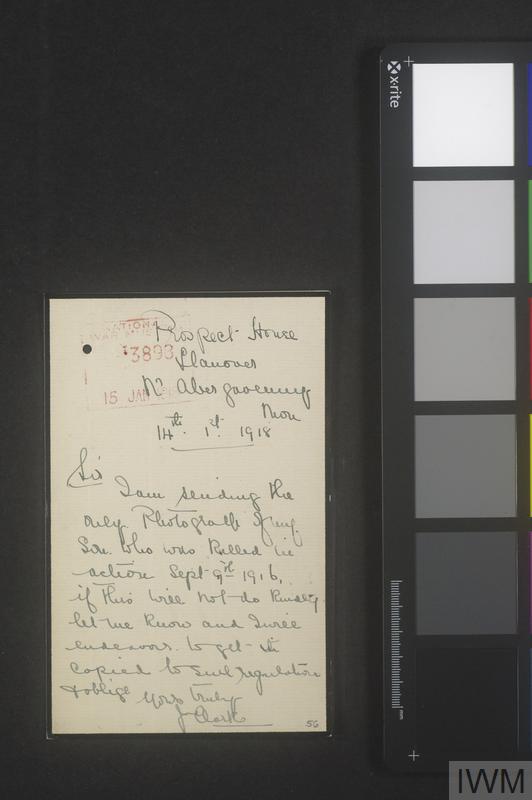 x-rite
NATIONAL
WAR MUSEUM
3893
15 JAN
Prospect House
Llanover
Nr Abergavenny
Mon
14th. 1st. 1918
Sir
I am sending the
only Photograph of my
Son who was Killed in
action Sept 9th 1916,
if this will not do Kindly
let me Know and I will
endeavour to get it
copied to suit regulation
& oblige yours truly
J Clark
56
IWM